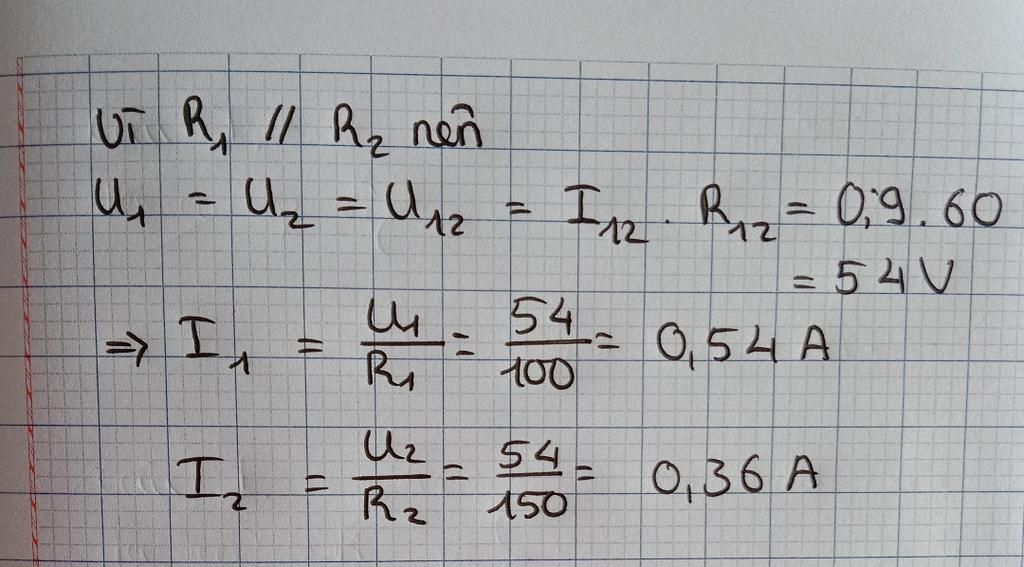 Vì R₁ // R₂ nên
U₁ = U₂ = U₁₂ = I₁₂ . R₁₂ = 0,9 . 60
= 54 V
⇒ I₁ = U₁/R₁ = 54/100 = 0,54 A
I₂ = U₂/R₂ = 54/150 = 0,36 A